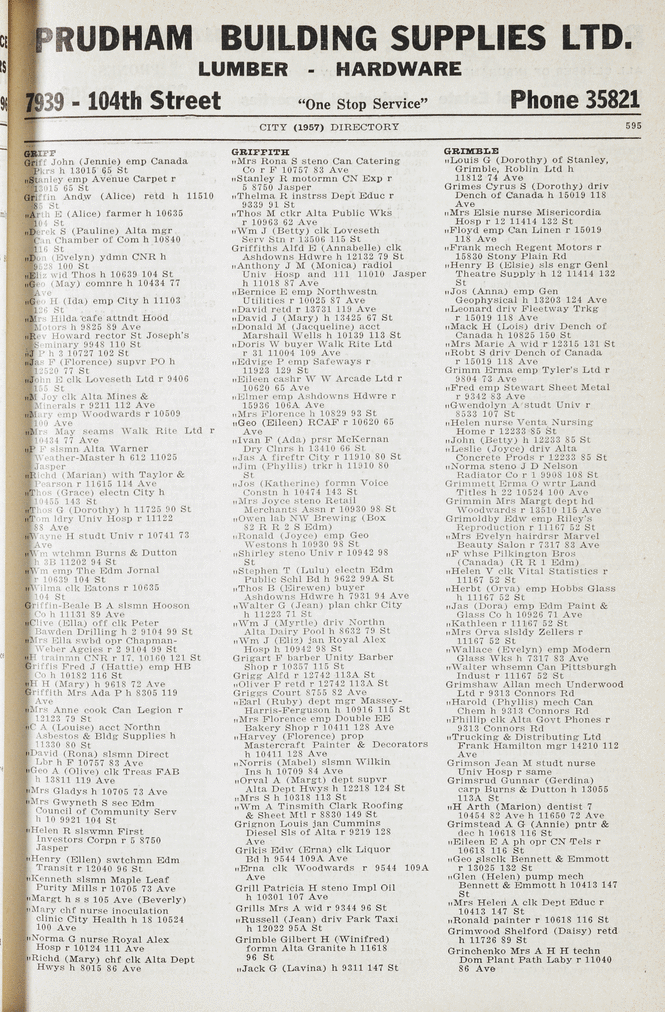 PRUDHAM BUILDING SUPPLIES LTD.
LUMBER - HARDWARE
7939 - 104th Street "One Stop Service" Phone 35821
CITY (1957) DIRECTORY 595
GRIFF
Griff John (Jennie) emp Canada
Pkrs h 13015 65 St
"Stanley emp Avenue Carpet r
13015 65 St
Griffin Andw (Alice) retd h 11510
85 St
"Arth E (Alice) farmer h 10635
104 St
"Derek S (Pauline) Alta mgr
Can Chamber of Com h 10840
116 St
"Don (Evelyn) ydmn CNR h
9528 100 St
"Eliz wid Thos h 10639 104 St
"Geo (May) comnre h 10434 77
Ave
"Geo H (Ida) emp City h 11103
126 St
"Mrs Hilda cafe attndt Hood
Motors h 9825 89 Ave
"Rev Howard rector St Joseph's
Seminary 9948 110 St
"J P h 3 10727 102 St
"Jas F (Florence) supvr PO h
12520 77 St
"John E clk Loveseth Ltd r 9406
155 St
"M Joy clk Alta Mines &
Minerals r 9211 112 Ave
"Mary emp Woodwards r 10509
100 Ave
"Mrs May seams Walk Rite Ltd r
10434 77 Ave
"P F slsmn Alta Warner
Weather-Master h 612 11025
Jasper
"Richd (Marian) with Taylor &
Pearson r 11615 114 Ave
"Thos (Grace) electn City h
10455 143 St
"Thos G (Dorothy) h 11725 90 St
"Tom ldry Univ Hosp r 11122
88 Ave
"Wayne H studt Univ r 10741 73
Ave
"Wm wtchmn Burns & Dutton
h 3B 11202 94 St
"Wm emp The Edm Jornal
r 10639 104 St
"Wilma clk Eatons r 10635
104 St
Griffin-Beale B A slsmn Hooson
Co h 11131 89 Ave
"Clive (Ella) off clk Peter
Bawden Drilling h 2 9104 99 St
"Mrs Ella swbd opr Chapman-
Weber Agcies r 2 9104 99 St
"H trainmn CNR r 17, 10160 121 St
Griffis Fred J (Hattie) emp HB
Co h 10182 116 St
"H H (Mary) h 9618 72 Ave
Griffith Mrs Ada P h 8305 119
Ave
"Mrs Anne cook Can Legion r
12123 79 St
"C A (Louise) acct Northn
Asbestos & Bldg Supplies h
11330 80 St
"David (Rona) slsmn Direct
Lbr h F 10757 83 Ave
"Geo A (Olive) clk Treas FAB
h 13811 119 Ave
"Mrs Gladys h 10705 73 Ave
"Mrs Gwyneth S sec Edm
Council of Community Serv
h 10 9921 104 St
"Helen R slswmn First
Investors Corpn r 5 8750
Jasper
"Henry (Ellen) swtchmn Edm
Transit r 12040 96 St
"Kenneth slsmn Maple Leaf
Purity Mills r 10705 73 Ave
"Margt h s s 105 Ave (Beverly)
"Mary chf nurse inoculation
clinic City Health h 18 10524
100 Ave
"Norma G nurse Royal Alex
Hosp r 10124 111 Ave
"Richd (Mary) chf clk Alta Dept
Hwys h 8015 86 Ave
GRIFFITH
"Mrs Rona S steno Can Catering
Co r F 10757 83 Ave
"Stanley R motormn CN Exp r
5 8750 Jasper
"Thelma R instrss Dept Educ r
9339 91 St
"Thos M ctkr Alta Public Wks
r 10963 62 Ave
"Wm J (Betty) clk Loveseth
Serv Stn r 13506 115 St
Griffiths Alfd E (Annabelle) clk
Ashdowns Hdwre h 12132 79 St
"Anthony J M (Monica) radiol
Univ Hosp and 111 11010 Jasper
h 11018 87 Ave
"Bernice E emp Northwestn
Utilities r 10025 87 Ave
"David retd r 13731 119 Ave
"David J (Mary) h 13425 67 St
"Donald M (Jacqueline) acct
Marshall Wells h 10139 113 St
"Doris W buyer Walk Rite Ltd
r 31 11004 109 Ave
"Edvige P emp Safeways r
11923 129 St
"Eileen cashr W W Arcade Ltd r
10620 65 Ave
"Elmer emp Ashdowns Hdwre r
15936 106A Ave
"Mrs Florence h 10829 93 St
"Geo (Eileen) RCAF r 10620 65
Ave
"Ivan F (Ada) prsr McKernan
Dry Clnrs h 13410 66 St
"Jas A fireftr City r 11910 80 St
"Jim (Phyllis) trkr h 11910 80
St
"Jos (Katherine) formn Voice
Constn h 10474 143 St
"Mrs Joyce steno Retail
Merchants Assn r 10930 98 St
"Owen lab NW Brewing (Box
82 R R 2 S Edm)
"Ronald (Joyce) emp Geo
Westons h 10930 98 St
"Shirley steno Univ r 10942 98
St
"Stephen T (Lulu) electn Edm
Public Schl Bd h 9622 99A St
"Thos B (Eirewen) buyer
Ashdowns Hdwre h 7931 94 Ave
"Walter G (Jean) plan chkr City
h 11223 71 St
"Wm J (Myrtle) driv Northn
Alta Dairy Pool h 8632 79 St
"Wm J (Eliz) jan Royal Alex
Hosp h 10942 98 St
Grigart F barber Unity Barber
Shop r 10357 115 St
Grigg Alfd r 12742 113A St
"Oliver P retd r 12742 113A St
Griggs Court 8755 82 Ave
"Earl (Ruby) dept mgr Massey-
Harris-Ferguson h 10916 115 St
"Mrs Florence emp Double EE
Bakery Shop r 10411 128 Ave
"Harvey (Florence) prop
Mastercraft Painter & Decorators
h 10411 128 Ave
"Norris (Mabel) slsmn Wilkin
Ins h 10709 84 Ave
"Orval A (Margt) dept supvr
Alta Dept Hwys h 12218 124 St
"Mrs S h 10318 113 St
"Wm A Tinsmith Clark Roofing
& Sheet Mtl r 8830 149 St
Grignon Louis jan Cummins
Diesel Sls of Alta r 9219 128
Ave
Grikis Edw (Erna) clk Liquor
Bd h 9544 109A Ave
"Erna clk Woodwards r 9544 109A
Ave
Grill Patricia H steno Impl Oil
h 10301 107 Ave
Grills Mrs A wid r 9344 96 St
"Russell (Jean) driv Park Taxi
h 12022 95A St
Grimble Gilbert H (Winifred)
formn Alta Granite h 11618
96 St
"Jack G (Lavina) h 9311 147 St
GRIMBLE
"Louis G (Dorothy) of Stanley,
Grimble, Roblin Ltd h
11812 74 Ave
Grimes Cyrus S (Dorothy) driv
Dench of Canada h 15019 118
Ave
"Mrs Elsie nurse Misericordia
Hosp r 12 11414 132 St
"Floyd emp Can Linen r 15019
118 Ave
"Frank mech Regent Motors r
15830 Stony Plain Rd
"Henry B (Elsie) sls engr Genl
Theatre Supply h 12 11414 132
St
"Jos (Anna) emp Gen
Geophysical h 13203 124 Ave
"Leonard driv Fleetway Trkg
r 15019 118 Ave
"Mack H (Lois) driv Dench of
Canada h 10825 150 St
"Mrs Marie A wid r 12315 131 St
"Robt S driv Dench of Canada
r 15019 118 Ave
Grimm Erma emp Tyler's Ltd r
9804 73 Ave
"Fred emp Stewart Sheet Metal
r 9342 83 Ave
"Gwendolyn A studt Univ r
8533 107 St
"Helen nurse Venta Nursing
Home r 12233 85 St
"John (Betty) h 12233 85 St
"Leslie (Joyce) driv Alta
Concrete Prods r 12233 85 St
"Norma steno J D Nelson
Radiator Co r 1 9908 108 St
Grimmett Erma O wrtr Land
Titles h 22 10524 100 Ave
Grimmin Mrs Margt dept hd
Woodwards r 13510 115 Ave
Grimoldby Edw emp Riley's
Reproduction r 11167 52 St
"Mrs Evelyn hairdrsr Marvel
Beauty Salon r 7317 83 Ave
"F whse Pilkington Bros
(Canada) (R R 1 Edm)
"Helen V clk Vital Statistics r
11167 52 St
"Herbt (Orva) emp Hobbs Glass
h 11167 52 St
"Jas (Dora) emp Edm Paint &
Glass Co h 10926 71 Ave
"Kathleen r 11167 52 St
"Mrs Orva slsldy Zellers r
11167 52 St
"Wallace (Evelyn) emp Modern
Glass Wks h 7317 83 Ave
"Walter whsemn Can Pittsburgh
Indust r 11167 52 St
Grimshaw Allan mech Underwood
Ltd r 9313 Connors Rd
"Harold (Phyllis) mech Can
Chem h 9313 Connors Rd
"Phillip clk Alta Govt Phones r
9313 Connors Rd
"Trucking & Distributing Ltd
Frank Hamilton mgr 14210 112
Ave
Grimson Jean M studt nurse
Univ Hosp r same
Grimsrud Gunnar (Gerdina)
carp Burns & Dutton h 13055
113A St
"H Arth (Marion) dentist 7
10454 82 Ave h 11650 72 Ave
Grimstead A G (Annie) pntr &
dec h 10618 116 St
"Eileen E A ph opr CN Tels r
10618 116 St
"Geo slsclk Bennett & Emmott
r 13025 132 St
"Glen (Helen) pump mech
Bennett & Emmott h 10413 147
St
"Mrs Helen A clk Dept Educ r
10413 147 St
"Ronald painter r 10618 116 St
Grimwood Shelford (Daisy) retd
h 11726 89 St
Grinchenko Mrs A H H techn
Dom Plant Path Laby r 11040
86 Ave